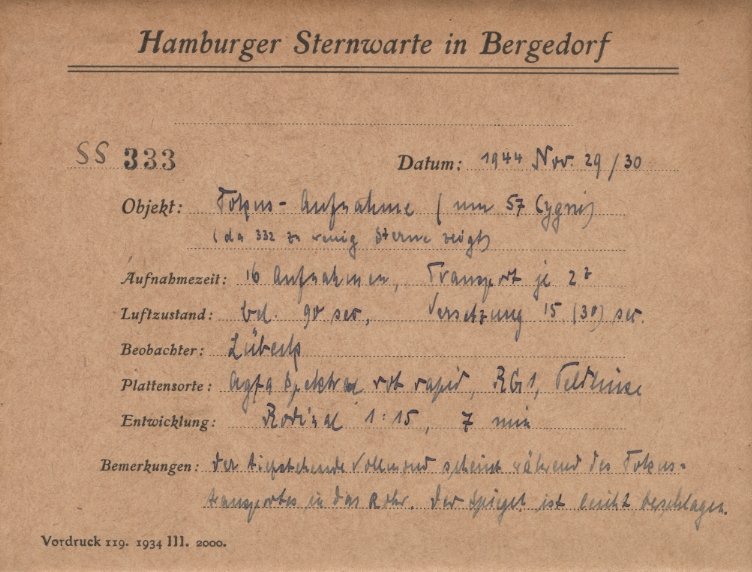 Hamburger Sternwarte in Bergedorf
SS 333 Datum: 1944 Nov. 29/30
Objekt: Fokus-Aufnahme (um 57 Cygni)
(da 332 zu wenig Sterne zeigt)
Aufnahmezeit: 16 Aufnahmen, Transport je 2
Luftzustand: bel. 90 sec, Versetzung 15 (30) sec.
Beobachter: Lübeck
Plattensorte: Agfa Spektral rot rapid, RG1, Feldlinse
Entwicklung: Rodinal 1:15, 7 min
Bemerkungen: Der tiefstehende Vollmond scheint während des Fokus-
transportes in das Rohr. Der Spiegel ist leicht beschlagen.
Vordruck 119. 1934 III. 2000.